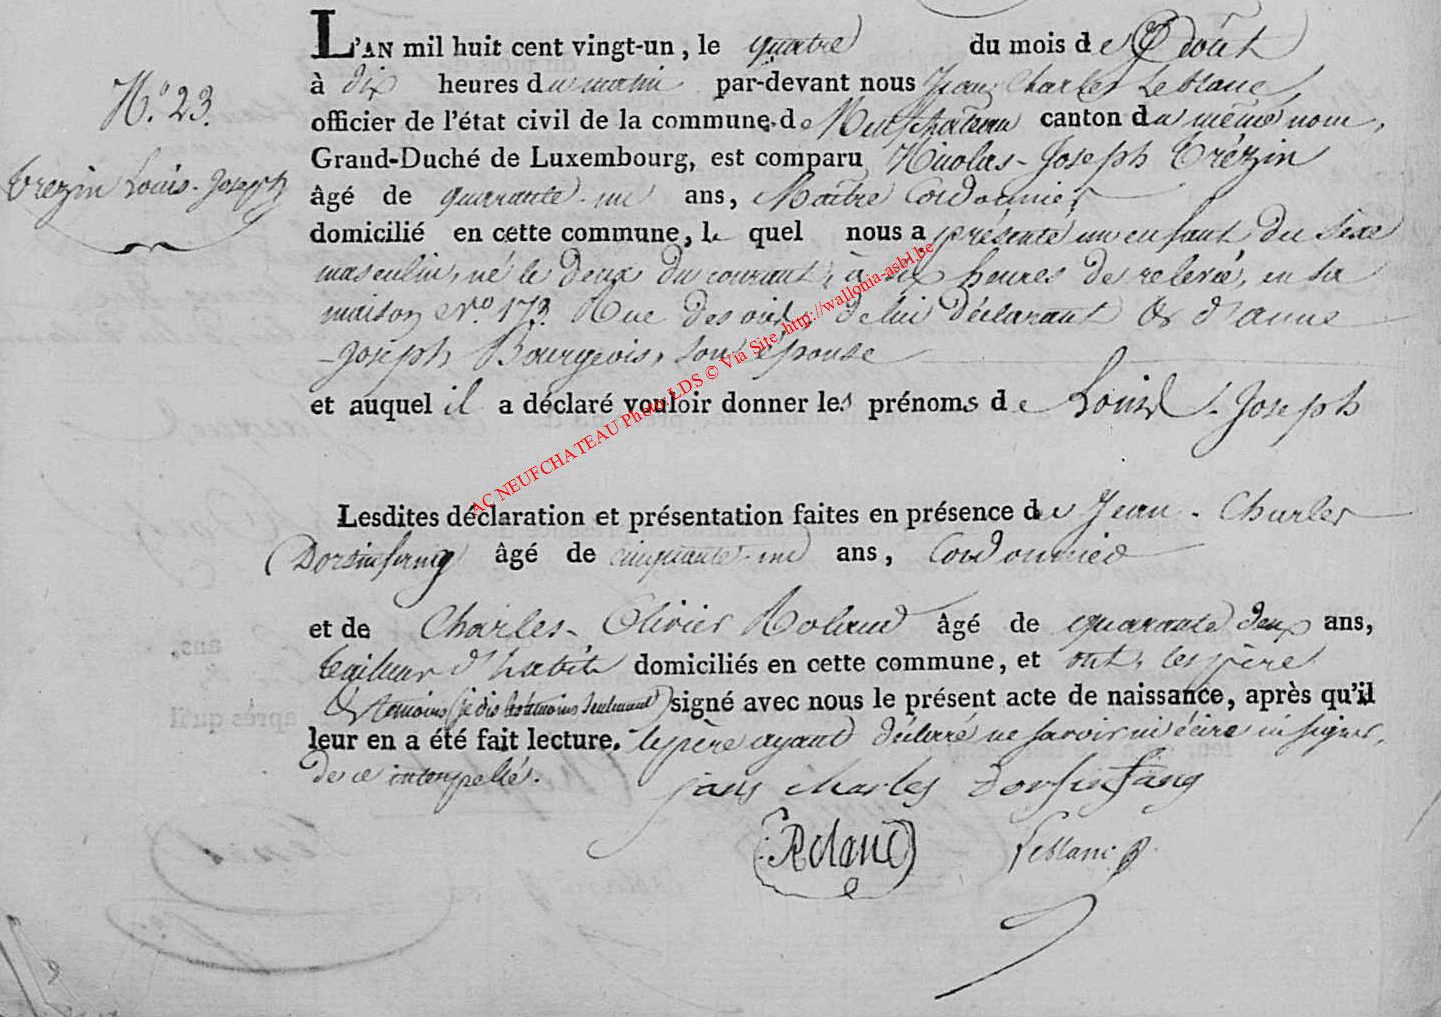 L'AN mil huit cent vingt-un, le quatre du mois de Août
à dix heures du matin par-devant nous Jean Charles Leblanc,
N.º 23.
officier de l'état civil de la commune de Neufchateau canton du même nom,
Grand-Duché de Luxembourg, est comparu Nicolas-Joseph Trézin
Trezin Louis-Joseph
âgé de quarante-un ans, Maître Cordonnier
domicilié en cette commune, le quel nous a présenté un enfant du sexe
masculin, né le deux du courant, à six heures de relevée, en sa
maison N.º 173 Rue des de lui déclarant & d'anne
-Joseph Bourgeois, son épouse
et auquel il a déclaré vouloir donner les prénoms de Louis-Joseph
AC NEUFCHATEAU Photo LDS © Via Site http://wallonia-asbl.be
Lesdites déclaration et présentation faites en présence de Jean-Charles
Dorsinfang âgé de cinquante-un ans, Cordonnier
et de Charles-Olivier Roland âgé de quarante deux ans,
tailleur d'habit domiciliés en cette commune, et ont, les père
& témoins (je dis les témoins seulement) signé avec nous le présent acte de naissance, après qu'il
leur en a été fait lecture, le père ayant déclaré ne savoir ni écrire ni signer,
de ce interpellé.
jans charles Dorsinfang
Roland
Leblanc